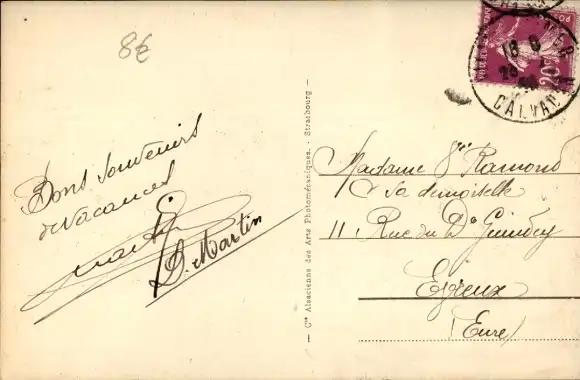 8€
Bons souvenirs
de vacances
D. Martin
— Cie Alsacienne des Arts Photomécaniques. - Strasbourg —
20c
18 8
CALVADOS
Madame Vve Ramond
& sa demoiselle
11, Rue du Dr
Evreux
(Eure)